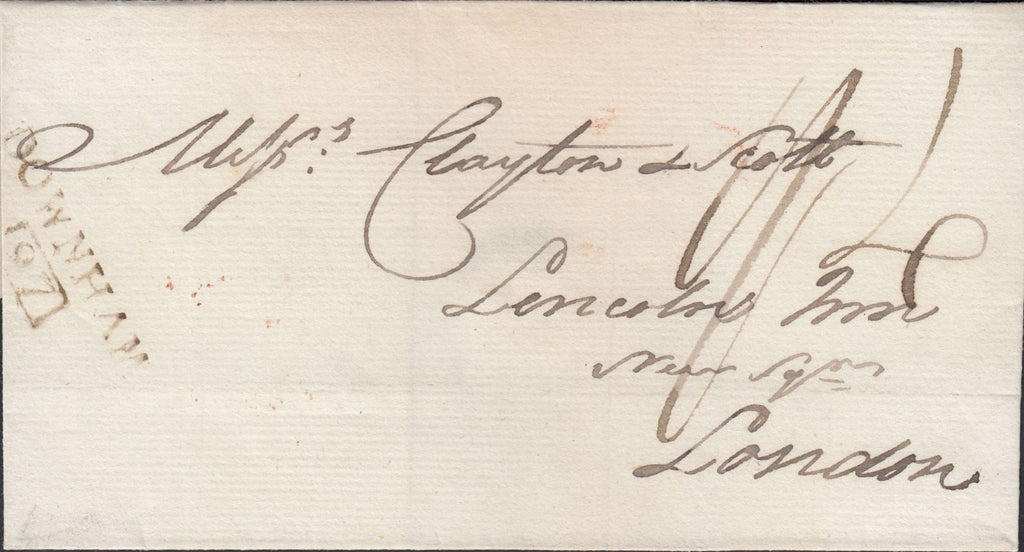 Messrs. Clayton & Scott
Lincolns Inn
New Sqre
London
DOWNHAM
107